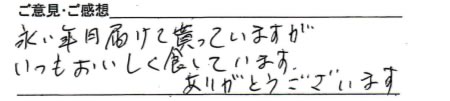 ご意見・ご感想
永い年月届けて貰っていますが
いつもおいしく食しています.
ありがとうございます